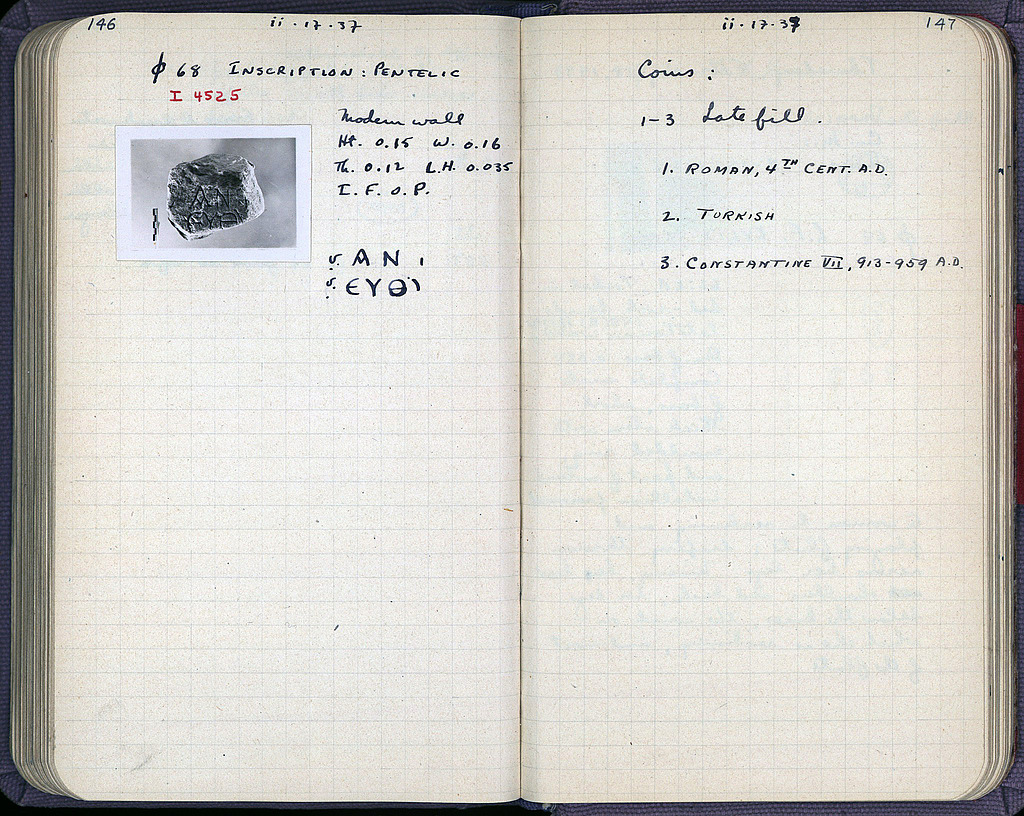 146
ii · 17 · 37
ϕ 68 INSCRIPTION : PENTELIC
I 4525
Modern wall
Ht. 0.15 W. 0.16
Th. 0.12 L.H. 0.035
I. F. O. P.
ΑΝΙ
ЄΥΘΙ
ii · 17 · 37
147
Coins :
1-3 Late fill.
1. ROMAN, 4TH CENT. A.D.
2. TURKISH
3. CONSTANTINE VII, 913-959 A.D.